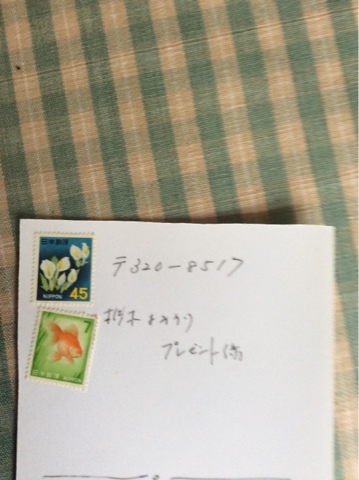 日本郵便
NIPPON 45
〒320-8517
7
栃木よみうり
プレゼント係
日本郵便